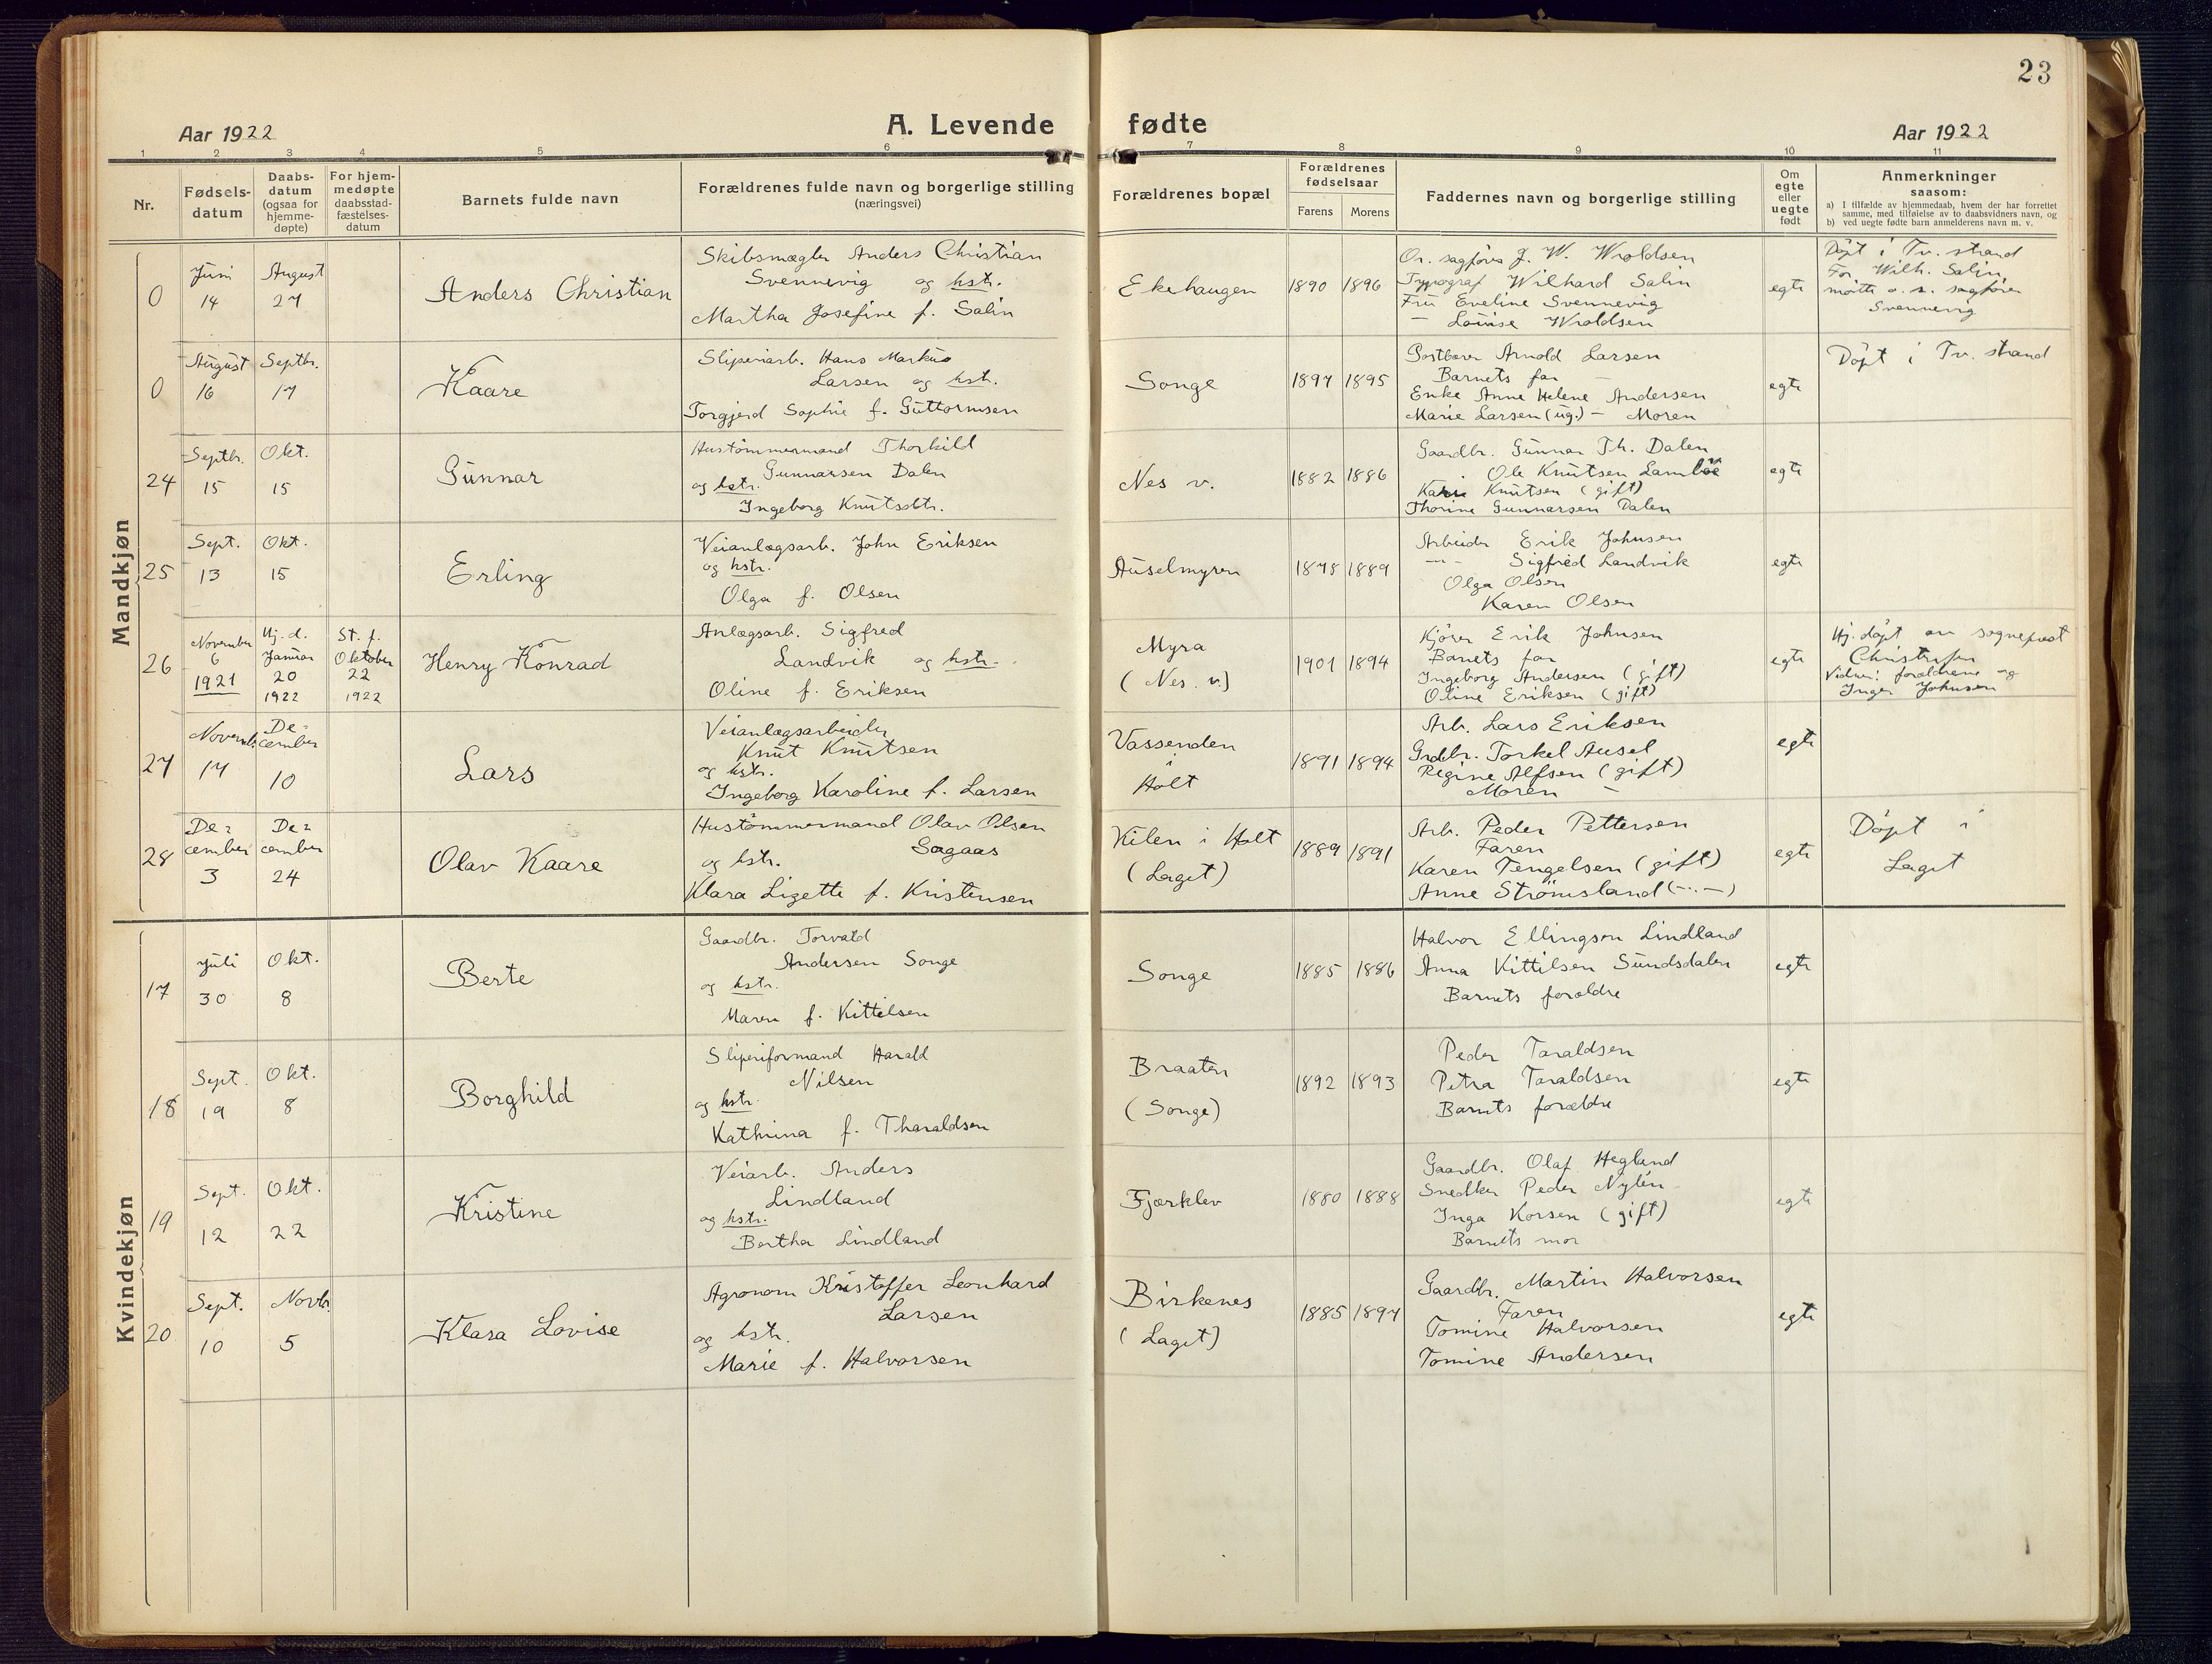 23
Aar 1922
A. Levende fødte
Aar 1922
1 2 3 4 5 6 7 8 9 10 11
Nr.
Fødsels-
datum
Daabs-
datum
(ogsaa for
hjemme-
døpte)
For hjem-
medøpte
daabsstad-
fæstelses-
datum
Barnets fulde navn
Forældrenes fulde navn og borgerlige stilling
(næringsvei)
Forældrenes bopæl
Forældrenes
fødselsaar
Farens Morens
Faddernes navn og borgerlige stilling
Om
egte
eller
uegte
født
Anmerkninger
saasom:
a) I tilfælde av hjemmedaab, hvem der har forrettet
samme, med tilføielse av to daabsvidners navn, og
b) ved uegte fødte barn anmelderens navn m. v.
Mandkjøn
0
Juni
14
August
27
Anders Christian
Skibsmægler Anders Christian
Svennevig og hstr.
Martha Josefine f. Salin
Ekehaugen
1890 1896
Or. sagfører J. W. Wroldsen
Typograf Wilhard Salin
Fru Eveline Svennevig
— Louise Wroldsen
egte
Døpt i Tv. strand
For Wilh. Salin,
møtte o. r. sagfører
Svennevig
0
August
16
Septbr.
17
Kaare
Sliperiarb. Hans Markus
Larsen og hstr.
Torgjerd Sophie f. Guttormsen
Songe
1897 1895
Postbærer Arnold Larsen
Barnets far —
Enke Anne Helene Andersen
Marie Larsen (ug.) — Moren
egte
Døpt i Tv. strand
24
Septbr.
15
Okt.
15
Gunnar
Hustømmermand Thorkild
Gunnarsen Dalen
og hstr.
Ingeborg Knutsdtr.
Nes v.
1882 1886
Gaardbr. Gunnar Th. Dalen
Ole Knutsen Lamlöe
Kari Knutsen (gift)
Thorine Gunnarsen Dalen
egte
25
Sept.
13
Okt.
15
Erling
Veianlægsarb. John Eriksen
og hstr.
Olga f. Olsen
Auselmyren
1878 1889
Arbeider Erik Johnsen
—„— Sigfred Landvik
Olga Olsen
Karen Olsen
egte
26
November
6
1921
Hj. d.
Januar
20
1922
St. f.
Oktober
22
1922
Henry Konrad
Anlægsarb. Sigfred
Landvik og hstr.
Oline f. Eriksen
Myra
(Nes v.)
1901 1894
Kjører Erik Johnsen
Barnets far
Ingeborg Andersen (gift)
Oline Eriksen (gift)
egte
Hj. døpt av sogneprest
Christensen
Vidner: forældrene og
Inger Johnsen
27
Novemb.
17
De-
cember
10
Lars
Veianlægsarbeider
Knut Knutsen
og hstr.
Ingeborg Karoline f. Larsen
Vassenden
i
Holt
1891 1894
Arb. Lars Eriksen
Grdbr. Torkel Ausel
Regine Alfsen (gift)
Moren —
egte
28
De-
cember
3
De-
cember
24
Olav Kaare
Hustømmermand Olav Olsen
Sagaas
og hstr.
Klara Lizette f. Kristensen
Kilen i Holt
(Laget)
1889 1891
Arb. Peder Pettersen
Faren
Karen Tengelsen (gift)
Anne Strömsland (—„—)
egte
Døpt i
Laget
Kvindekjøn
17
Juli
30
Okt.
8
Berte
Gaardbr. Torvald
Andersen Songe
og hstr.
Maren f. Kittilsen
Songe
1885 1886
Halvor Ellingson Lindland
Anna Kittilsen Sundsdalen
Barnets forældre
egte
18
Sept.
19
Okt.
8
Borghild
Sliperiformand Harald
Nilsen
og hstr.
Kathrina f. Tharaldsen
Braaten
(Songe)
1892 1893
Peder Taraldsen
Petra Taraldsen
Barnets forældre
egte
19
Sept.
12
Okt.
22
Kristine
Veiarb. Anders
Lindland
og hstr.
Bertha Lindland
Fjærklev
1880 1888
Gaardbr. Olaf Hegland
Snedker Peder Nylén
Inga Korsen (gift)
Barnets mor
egte
20
Sept.
10
Novbr.
5
Klara Lovise
Agronom Kristoffer Leonhard
Larsen
og hstr.
Marie f. Halvorsen
Birkenes
(Laget)
1885 1897
Gaardbr. Martin Halvorsen
Faren
Tomine Halvorsen
Tomine Andersen
egte